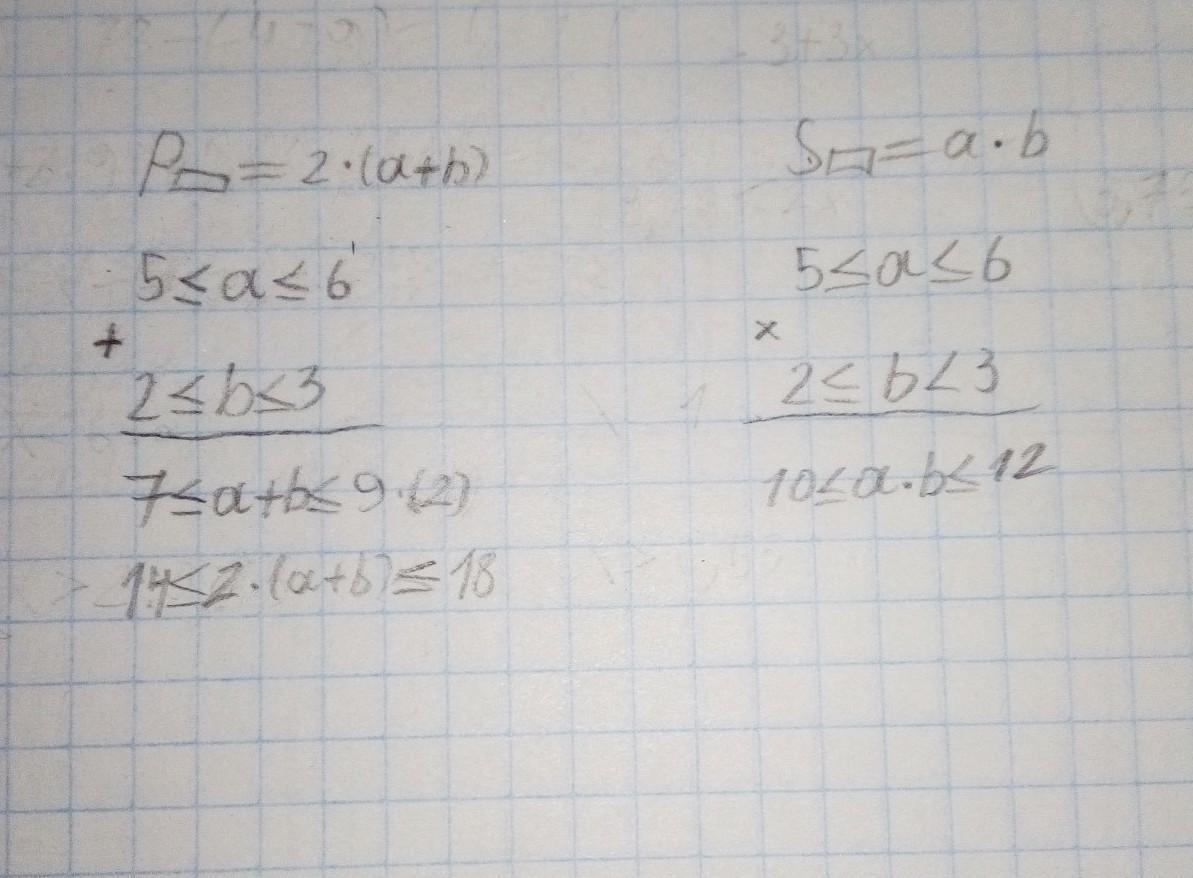 P▭ = 2·(a+b)
5≤a≤6
+
2≤b≤3
7≤a+b≤9·(2)
14≤2·(a+b)≤18
S▭ = a·b
5≤a≤6
×
2≤b<3
10≤a·b≤12